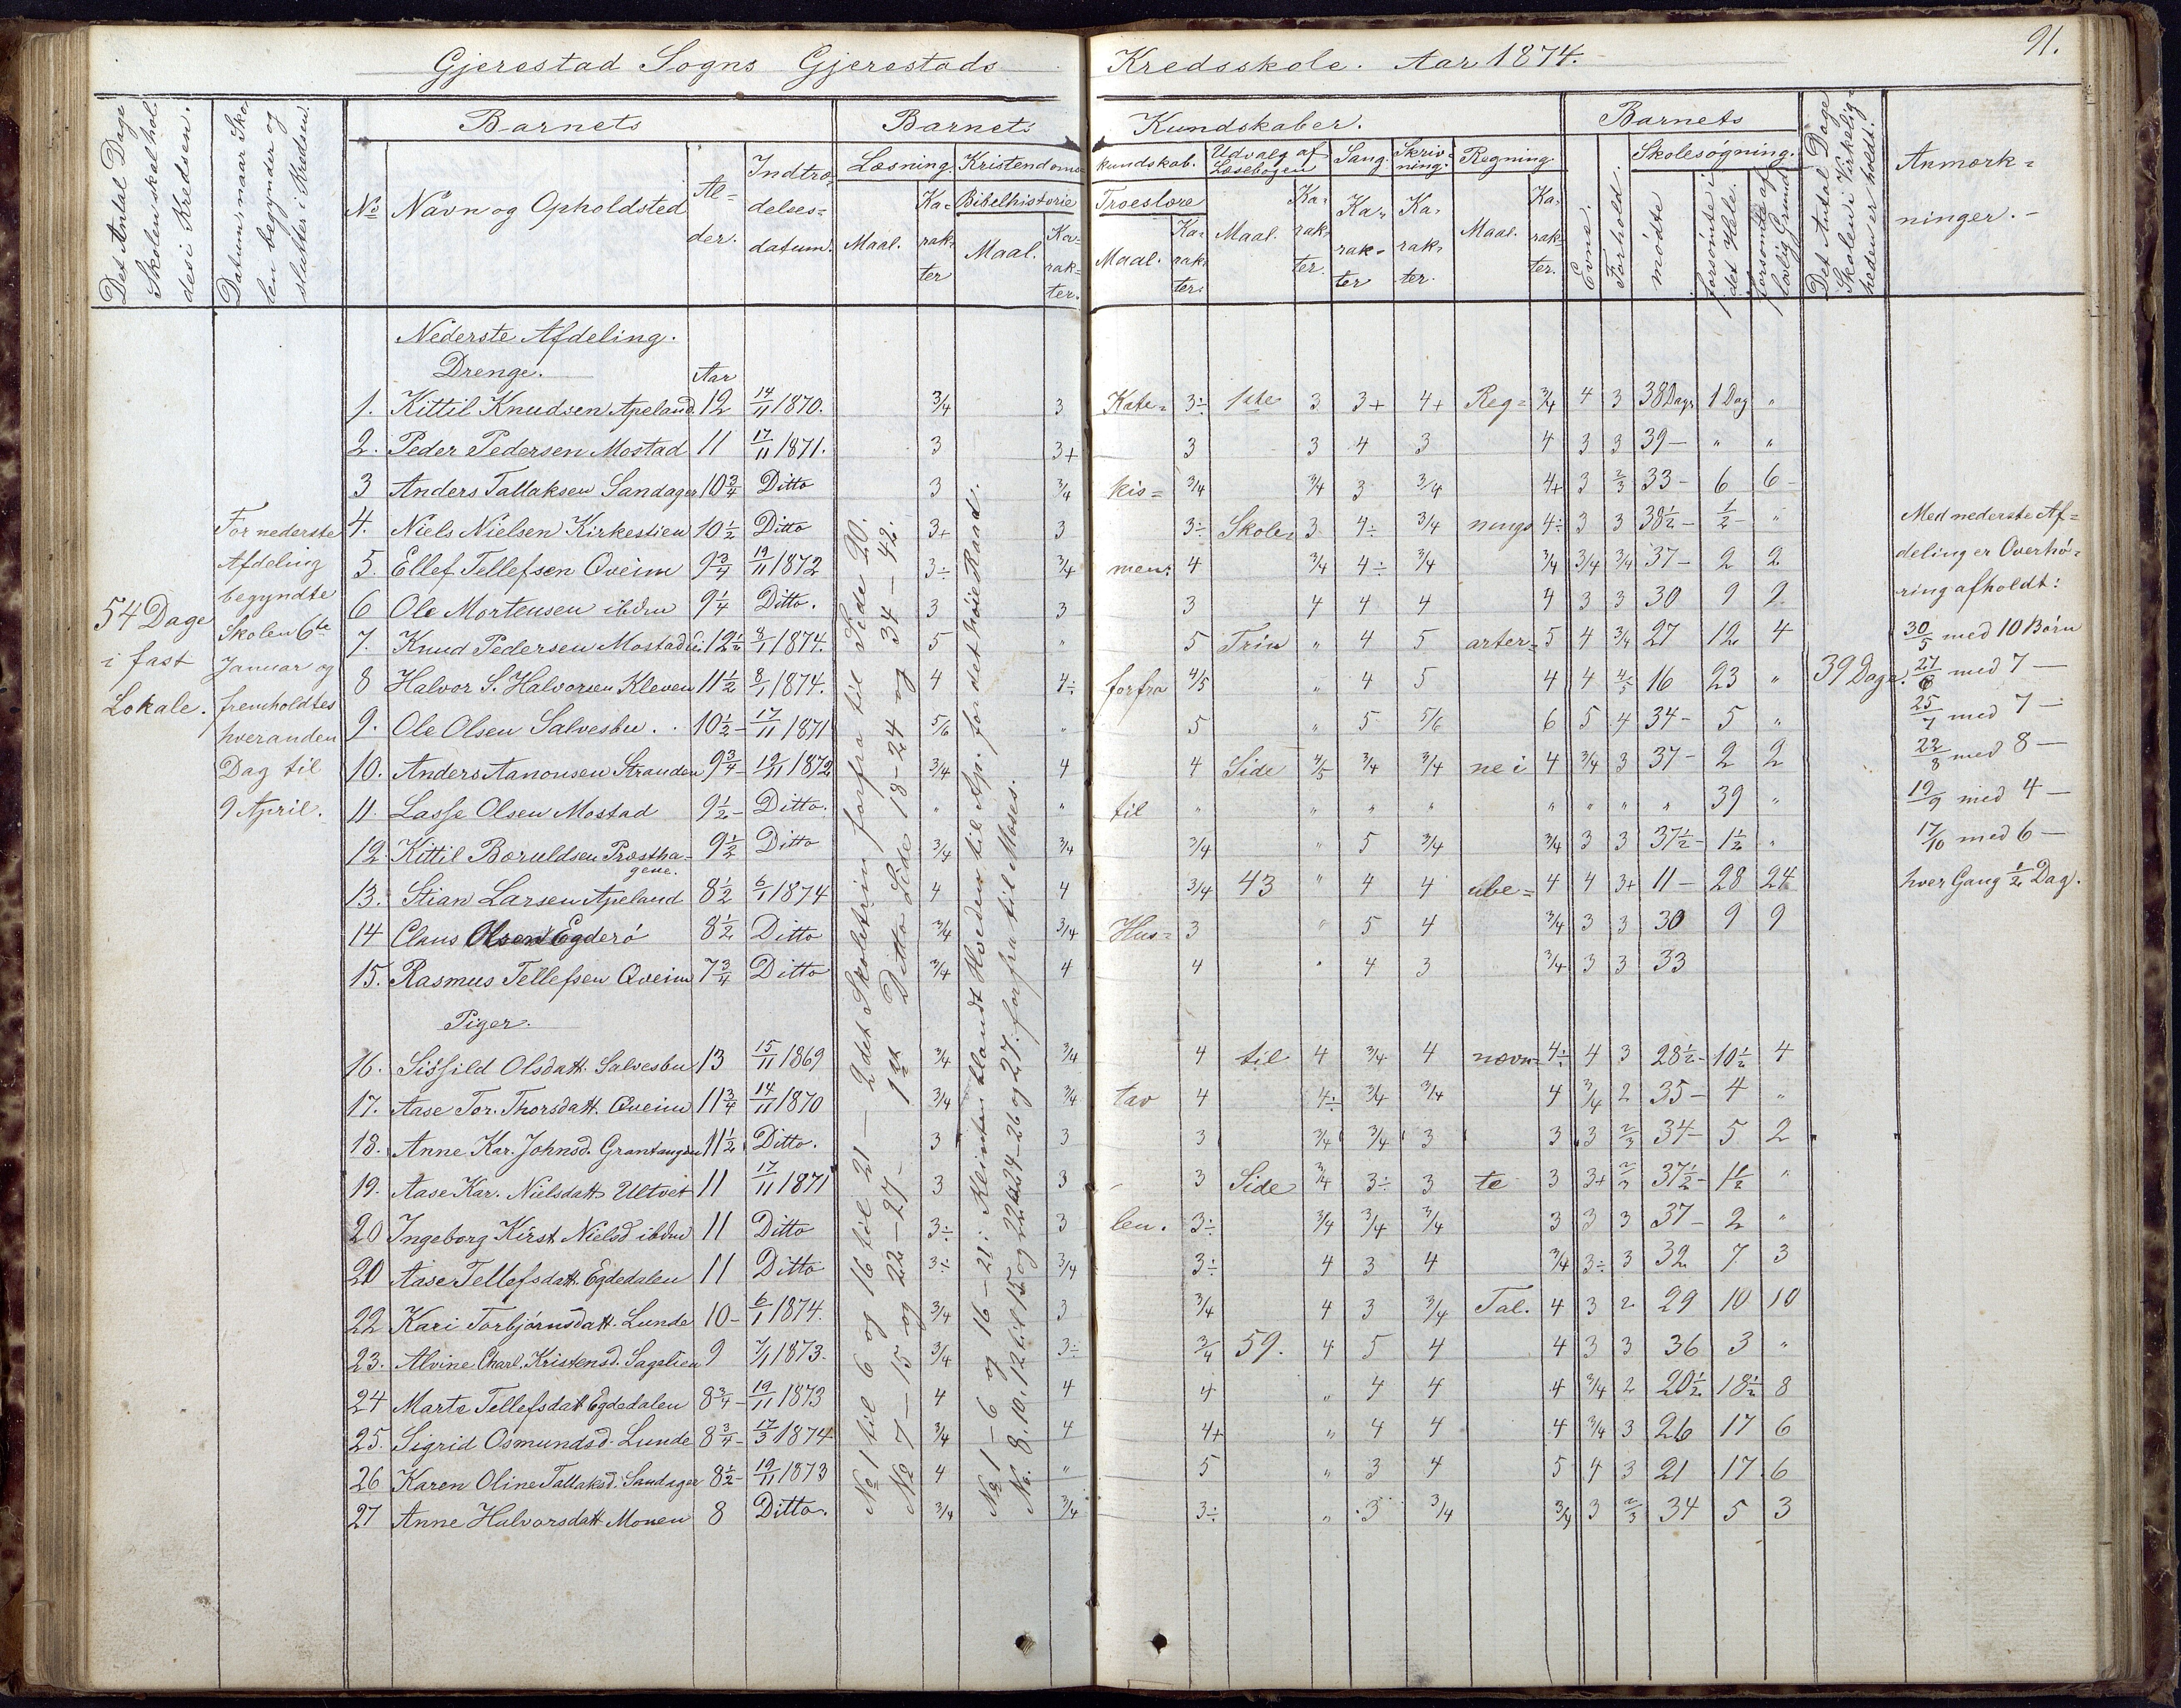 Gjerestad Sogns Gjerestads Kredsskole. Aar 1874.
91.
Det Antal Dage Skolen skal holdes i Kredsen.
Datum, naar Skolen begynder og slutter i Kredsen.
Barnets
Barnets Kundskaber.
Barnets
Det Antal Dage Skolen i Virkeligheden er holdt.
Anmærkninger.
No
Navn og Opholdsted
Alder.
Indtrædelsesdatum.
Læsning.
Kristendomskundskab.
Udvalg af Læsebogen
Sang.
Skrivning.
Regning.
Evne.
Forhold.
Skolesøgning.
Bibelhistorie
Troeslære
Maal.
Karakter
Maal.
Karakter.
Maal.
Karakter.
Maal.
Karakter.
Karakter
Karakter.
Maal.
Karakter.
mødte
forsømte i det Hele.
forsømte af lovlig Grund
Nederste Afdeling.
Drenge.
Aar
1. Kittil Knudsen Apeland. 12 14/11 1870. 3/4 3 Kate= 3÷ 1ste 3 3+ 4+ Reg= 3/4 4 3 38 Dage 1 Dag "
2. Peder Pedersen Mostad 11 17/11 1871. 3 3+ 3 3 4 3 4 3 3 39 — " "
3 Anders Tallaksen Sandager 10 3/4 Ditto 3 3/4 kis= 3/4 3/4 3 3/4 4+ 3 2/3 33 - 6 6 -
4. Niels Nielsen Kirkestien 10 1/2 Ditto 3+ 3 3÷ Skole= 3 4÷ 3/4 nings 4÷ 3 3 38 1/2 - 1/2 - "
5. Ellef Tellefsen Qveim 9 3/4 19/11 1872 3÷ 3/4 men: 4 3/4 4÷ 3/4 3/4 3/4 3/4 37 - 2 2
6 Ole Mortensen ibdm 9 1/4 Ditto. 3 3 3 4 4 4 4 3 3 30 9 9
7. Knud Pedersen Mostad 12 1/2 8/1 1874. 5 " 5 Trin " 4 5 arter= 5 4 3/4 27 12 4
8 Halvor S. Halvorsen Kleven 11 1/2 8/1 1874. 4 4÷ forfra 4/5 " 4 5 4 4 4/5 16 23 "
9. Ole Olsen Salvesbu. 10 1/2 - 17/11 1871 5/6 " 5 " 5 5/6 6 5 4 34 - 5 "
10. Anders Aanonsen Stranden 9 3/4 - 19/11 1872 3/4 4 4 Side 4/5 3/4 3/4 ne i 4 3/4 3 37 - 2 2
11. Lasse Olsen Mostad 9 1/2 - Ditto. " " til " " " " " " " " 39 "
12. Kittil Boruldsen Prosthagene. 9 1/2 Ditto 3/4 3/4 3/4 " 5 3/4 3/4 3 3 37 1/2 - 1 1/2 "
13. Stian Larsen Apeland 8 1/2 6/1 1874 4 4 3/4 43 " 4 4 ube= 4 4 3+ 11 - 28 24
14 Claus Olsen Egderö 8 1/2 Ditto 3/4 3/4 Hus= 3 " 5 4 3/4 3 3 30 9 9
15. Rasmus Tellefsen Qveim 7 3/4 Ditto 3/4 4 4 " 4 3 3/4 3 3 33
Piger.
16. Sissild Olsdatt. Salvesbu 13 15/11 1869 3/4 3/4 4 til 4 3/4 4 nævn= 4÷ 4 3 28 1/2 - 10 1/2 4
17. Aase Tor. Thorsdatt. Qveim 11 3/4 14/11 1870 3/4 3/4 tav 4 4÷ 3/4 3/4 4 3/4 2 35 - 4 "
18. Anne Kar. Johnsd. Grantangen 11 1/2 Ditto. 3 3 3 3/4 3/4 3 3 3 2/3 34 - 5 2
19. Aase Kar. Nielsdatt Ultvet 11 17/11 1871 3 3 3 Side 3/4 3÷ 3 te 3 3+ 2/3 37 1/2 - 1 1/2 "
20 Ingeborg Kirst Nielsd ibdm 11 Ditto 3÷ 3 len. 3÷ 3/4 3/4 3/4 3 3 3 37 - 2 "
20 Aase Tellefsdatt. Egdedalen 11 Ditto 3÷ 3/4 3÷ 4 3 4 3/4 3÷ 3 32 7 3
22 Kari Torbjørnsdatt. Lunde 10 - 6/1 1874. 3/4 3 3/4 4 3 3/4 Tal. 4 3 2 29 10 10
23. Alvine Charl. Kristensd. Sagelien 9 7/1 1873. 3/4 3÷ 3/4 59. 4 5 4 4 3 3 36 3 "
24 Marte Tellefsdatt Egdedalen 8 3/4 - 19/11 1873 4 4 4 " 4 4 4 3/4 2 20 1/2 18 1/2 8
25. Sigrid Osmundsd. Lunde 8 3/4 - 17/3 1874 3/4 4 4+ " 4 4 4 3/4 3 26 17 6
26 Karen Oline Tallaksd. Sandager 8 1/2 - 19/11 1873 4 " 5 " 3 4 5 4 3 21 17 6
27 Anne Halvorsdatt Monen 8 Ditto. 3/4 3/4 3÷ " 3 3/4 3/4 3 2/3 34 5 3
54 Dage
i fast
Lokale.
For nederste
Afdeling
begyndte
Skolen 6te
Januar og
fremholdtes
hveranden
Dag til
9 April.
No 1 til 6 og 16 til 21 — 2det Skoletrin forfra til Side 20.
No 7 — 15 og 22 — 27 - 1ste Ditto Side 18 - 24 og 34 — 42.
No 1 — 6 og 16 — 21: Klinten blandt Hveden til Ap. for det høie Raad.
No. 8. 10. 12 til 15 og 22 24 - 26 og 27. forfra til Moses.
39 Dage.
Med nederste Af=
deling er Overhø=
ring afholdt:
30/5 med 10 Børn
27/6 med 7 —
25/7 med 7 —
22/8 med 8 —
19/9 med 4 —
17/10 med 6 —
hver Gang 1/2 Dag.